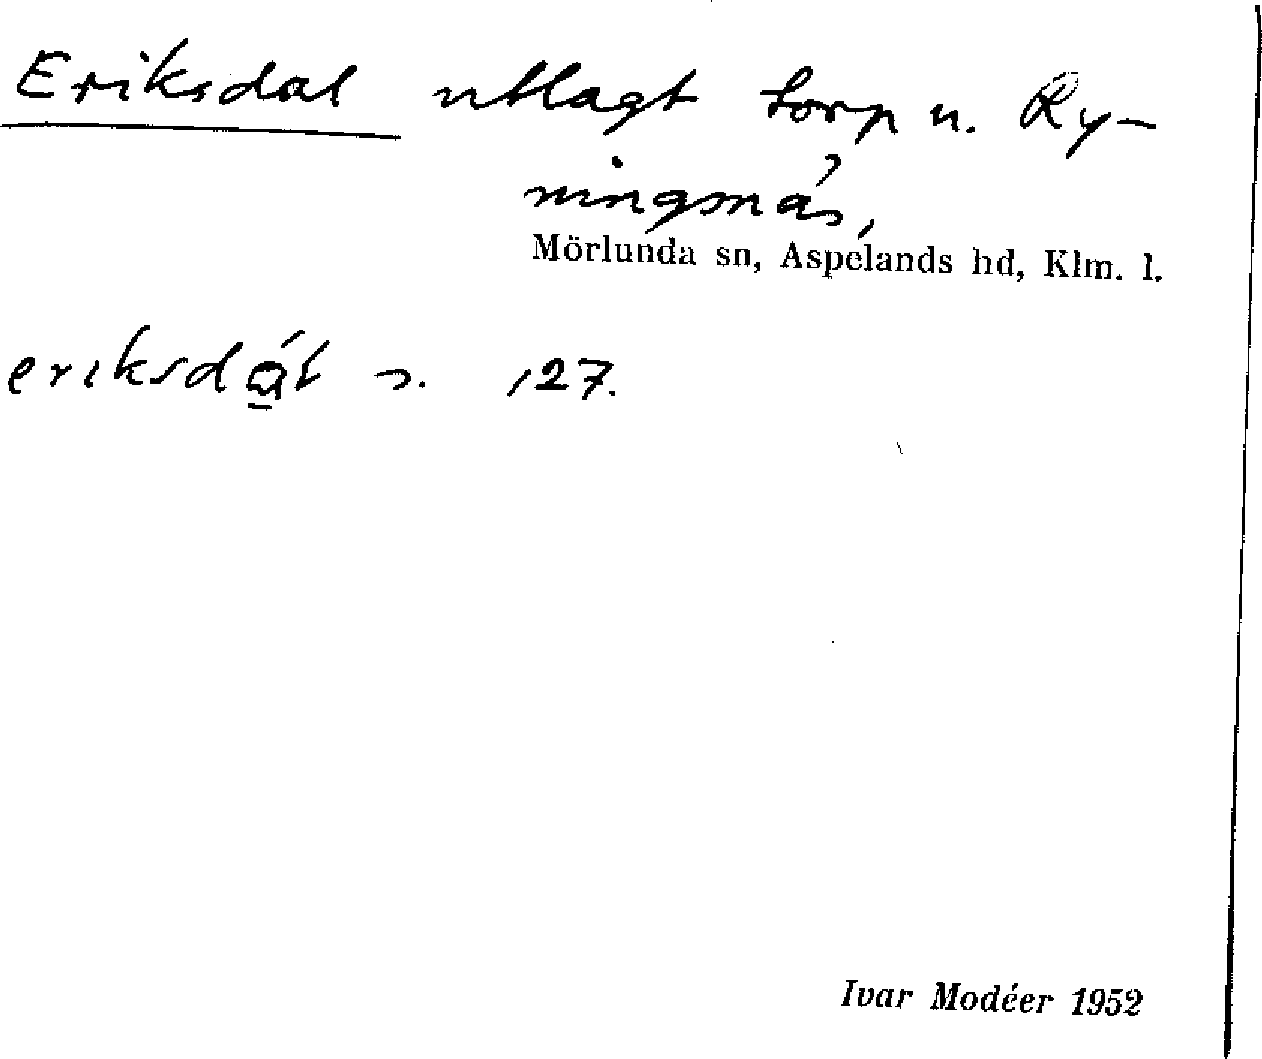 Eriksdal utlagt torp u. Ry-
ningsnäs,
Mörlunda sn, Aspelands hd, Klm. l.
127.
Ivar Modéer 1952